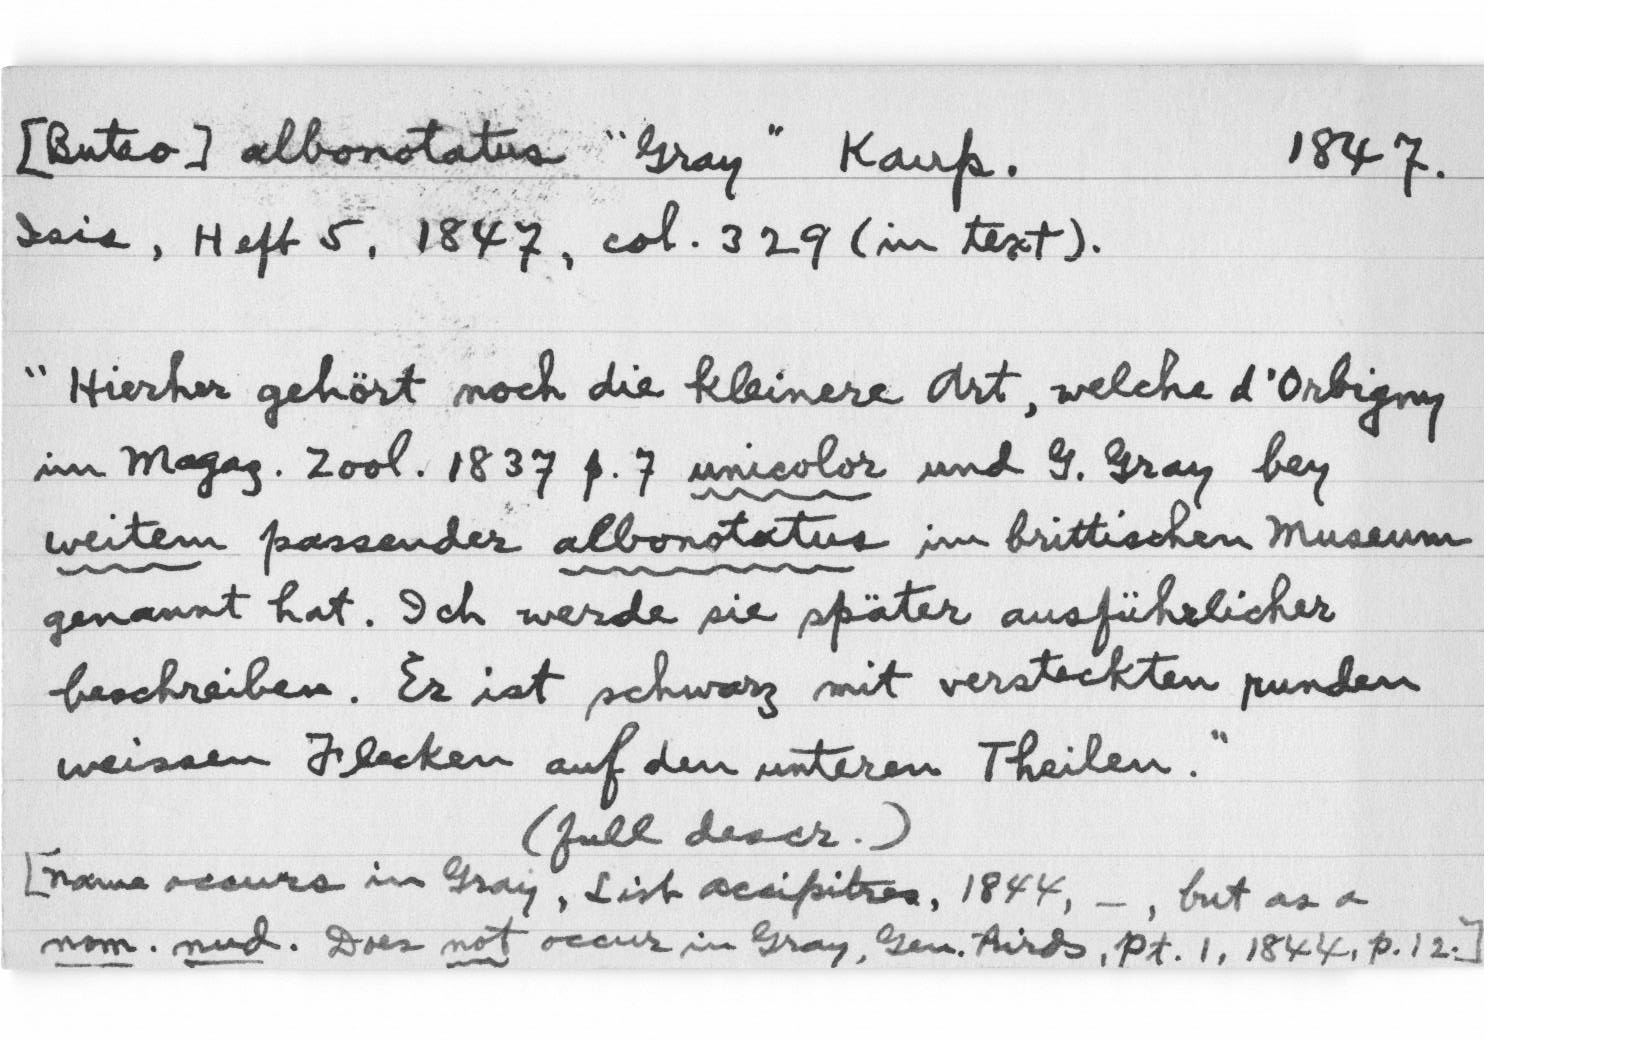 [Buteo] albonotatus "Gray" Kaup. 1847.
Isis, Heft 5, 1847, col. 329 (in text).
"Hierher gehört noch die kleinere Art, welche d'Orbigny
im Magaz. Zool. 1837 p. 7 unicolor und G. Gray bey
weitem passender albonotatus im brittischen Museum
genannt hat. Ich werde sie später ausführlicher
beschreiben. Er ist schwarz mit versteckten runden
weissen Flecken auf den unteren Theilen."
(full descr.)
[Name occurs in Gray, List Accipitres, 1844, –, but as a
nom. nud. Does not occur in Gray, Gen. Birds, Pt. 1, 1844, p. 12.]